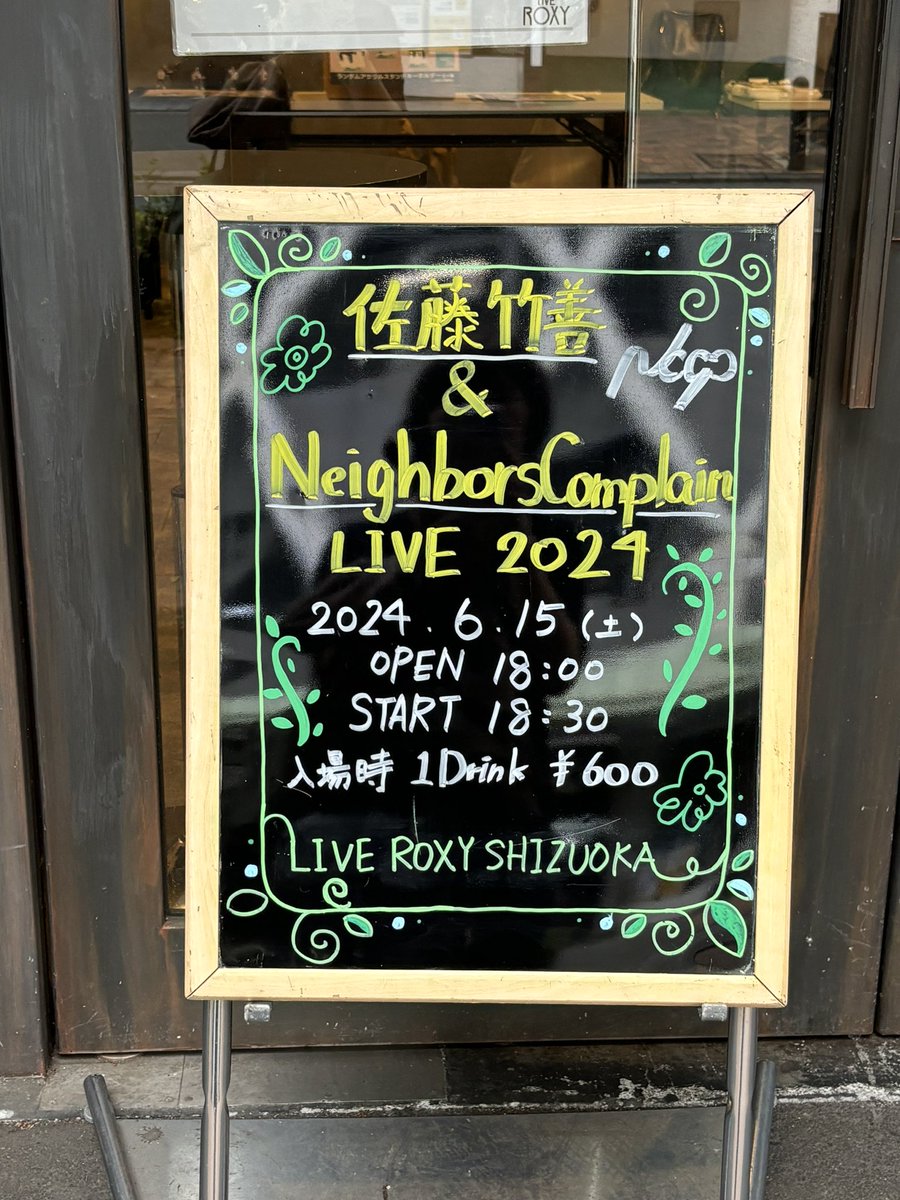 LIVE
ROXY
佐藤竹善
&
NeighborsComplain
LIVE 2024
2024.6.15(土)
OPEN 18:00
START 18:30
入場時 1Drink ¥600
LIVE ROXY SHIZUOKA